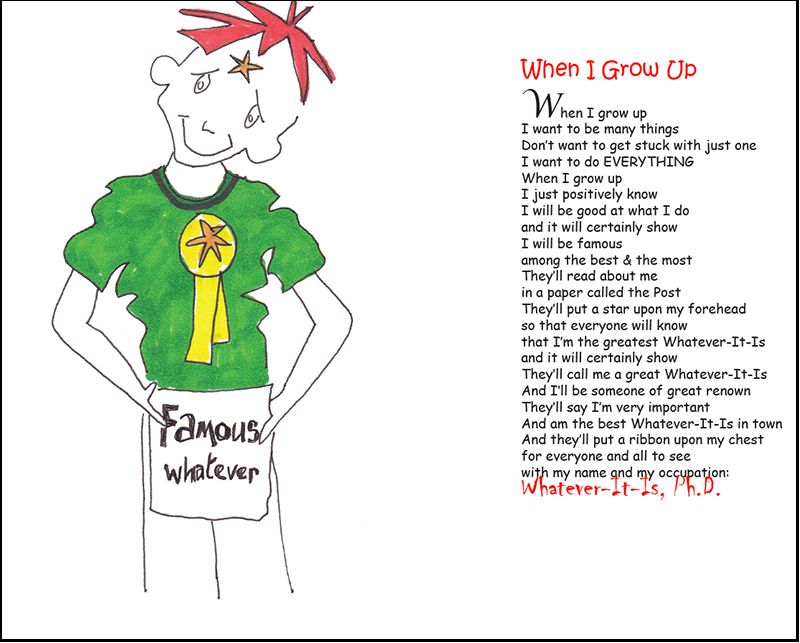 Famous
whatever
When I Grow Up
When I grow up
I want to be many things
Don't want to get stuck with just one
I want to do EVERYTHING
When I grow up
I just positively know
I will be good at what I do
and it will certainly show
I will be famous
among the best & the most
They'll read about me
in a paper called the Post
They'll put a star upon my forehead
so that everyone will know
that I'm the greatest Whatever-It-Is
and it will certainly show
They'll call me a great Whatever-It-Is
And I'll be someone of great renown
They'll say I'm very important
And am the best Whatever-It-Is in town
And they'll put a ribbon upon my chest
for everyone and all to see
with my name and my occupation:
Whatever-It-Is, Ph.D.